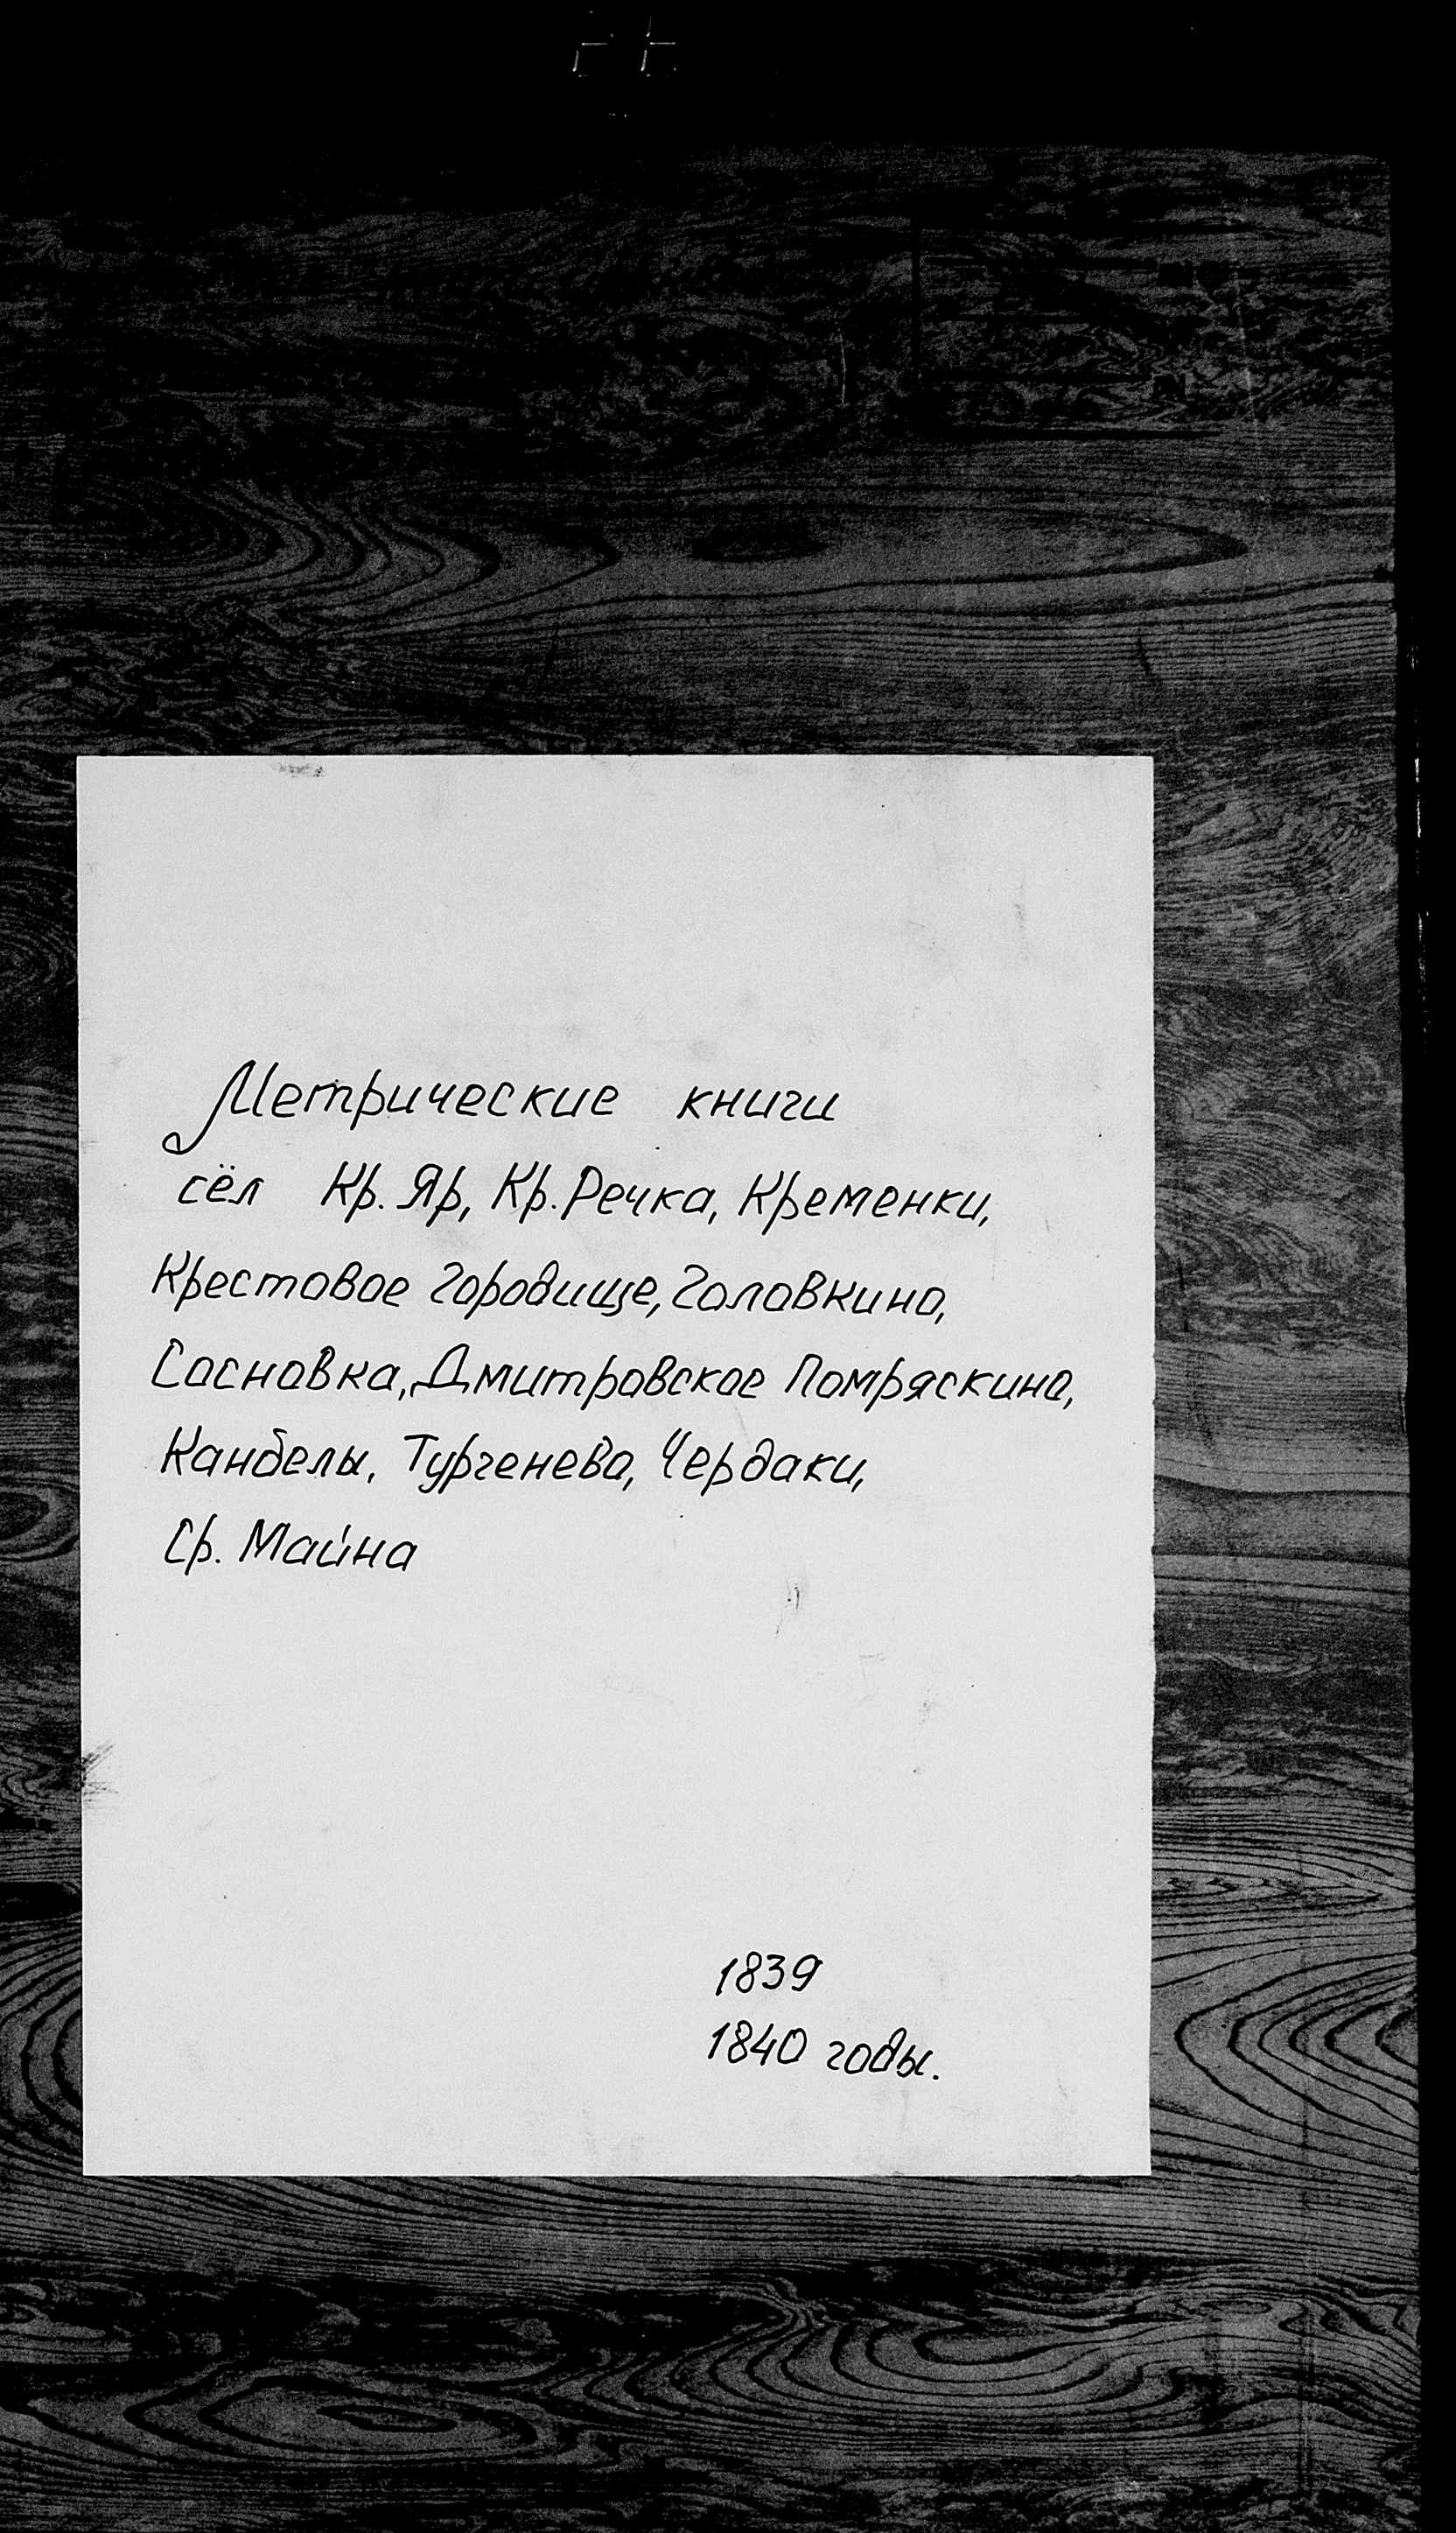 Метрические книги
сёл Кр. Яр, Кр. Речка, Кременки,
Крестовое Городище, Головкино,
Сосновка, Дмитровское Помряскино,
Канбелы, Тургенево, Чердаки,
Ср. Майна
1839
1840 годы.